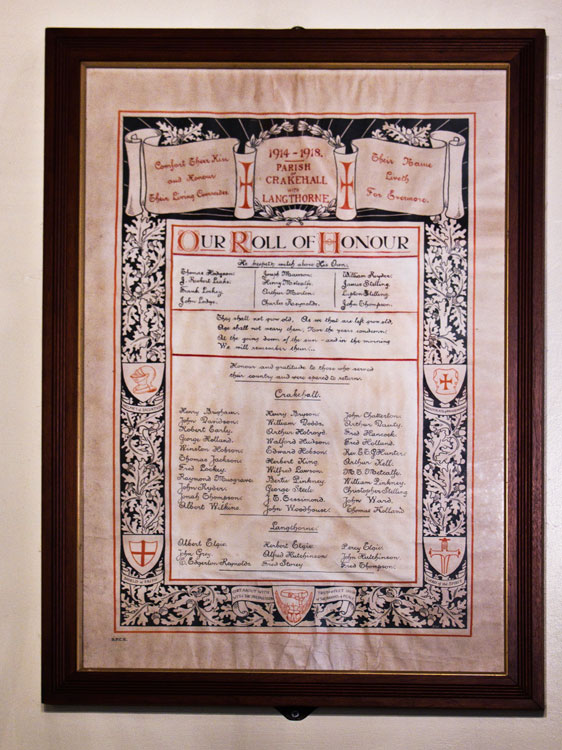 Comfort Their Kin
and Honour
Their Living Comrades
1914-1918.
PARISH
of
CRAKEHALL
with
LANGTHORNE
Their Name
Liveth
For Evermore.
OUR ROLL OF HONOUR
He keepeth watch above His Own.
Thomas Hodgson. Joseph Marmon. William Ryder.
J. Herbert Leake. Henry Metcalfe. James Stelling.
Frank Linkey. Arthur Lupton Stelling.
John Lodge. Charles Reynolds. John Thompson.
They shall not grow old, As we that are left grow old,
Age shall not weary them, Nor the years condemn:
At the going down of the sun and in the morning
We will remember them.
Honour and gratitude to those who served
their country and were spared to return.
Crakehall.
Henry Brigham. Henry Bryson. John Chatterton.
John Davidson. William Dodds. Arthur Dainty.
Robert Early. Arthur Holroyd. Fred Hancock.
George Holland. Walford Hudson. Fred Holland.
Winston Hobson. Edward Hobson. Rev. E.E.G. Hunter.
Thomas Jackson. Herbert King. Arthur Kell.
Fred Linkey. Wilfred Lawson. M.S. Metcalfe.
Raymond Musgrave. Bertie Pinkney. William Pinkney.
John Ryder. George Steele. Christopher Stelling.
Jonah Thompson. J.T. Sessimond. John Ward.
Albert Wilkins. John Woodhouse. Thomas Holland.
Langthorne.
Albert Elgie. Herbert Elgie. Percy Elgie.
John Grey. Alfred Hutchinson. John Hutchinson.
W. Edgerton Reynolds. Fred Storey. Fred Thompson.